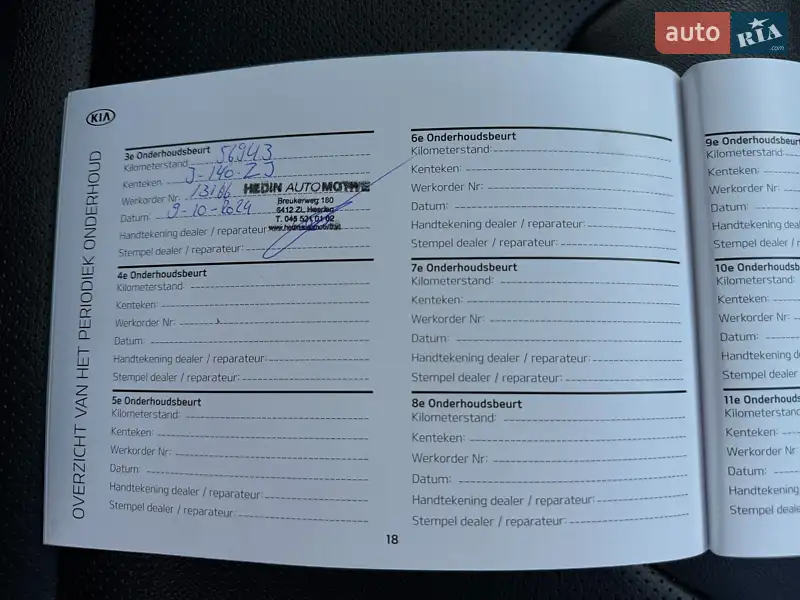 auto RIA .com
KIA
OVERZICHT VAN HET PERIODIEK ONDERHOUD
3e Onderhoudsbeurt
Kilometerstand 56943
Kenteken: J-140-ZJ
Werkorder Nr: 13166
Datum: 9-10-2024
Handtekening dealer / reparateur:
Stempel dealer / reparateur:
HEDIN AUTOMOTIVE
Breukerweg 180
6412 ZL Heerlen
T. 045 521 01 02
4e Onderhoudsbeurt
Kilometerstand:
Kenteken:
Werkorder Nr:
Datum:
Handtekening dealer / reparateur:
Stempel dealer / reparateur:
5e Onderhoudsbeurt
Kilometerstand:
Kenteken:
Werkorder Nr:
Datum:
Handtekening dealer / reparateur:
Stempel dealer / reparateur:
6e Onderhoudsbeurt
Kilometerstand:
Kenteken:
Werkorder Nr:
Datum:
Handtekening dealer / reparateur:
Stempel dealer / reparateur:
7e Onderhoudsbeurt
Kilometerstand:
Kenteken:
Werkorder Nr:
Datum:
Handtekening dealer / reparateur:
Stempel dealer / reparateur:
8e Onderhoudsbeurt
Kilometerstand:
Kenteken:
Werkorder Nr:
Datum:
Handtekening dealer / reparateur:
Stempel dealer / reparateur:
18
9e Onderhoudsbeurt
Kilometerstand:
Kenteken:
Werkorder Nr:
Datum:
Handtekening d
Stempel dealer / r
10e Onderhoudsb
Kilometerstand:
Kenteken:
Werkorder Nr:
Datum:
Handtekening de
Stempel dealer
11e Onderhouds
Kilometerstand
Kenteken:
Werkorder Nr
Datum:
Handtekening
Stempel deale